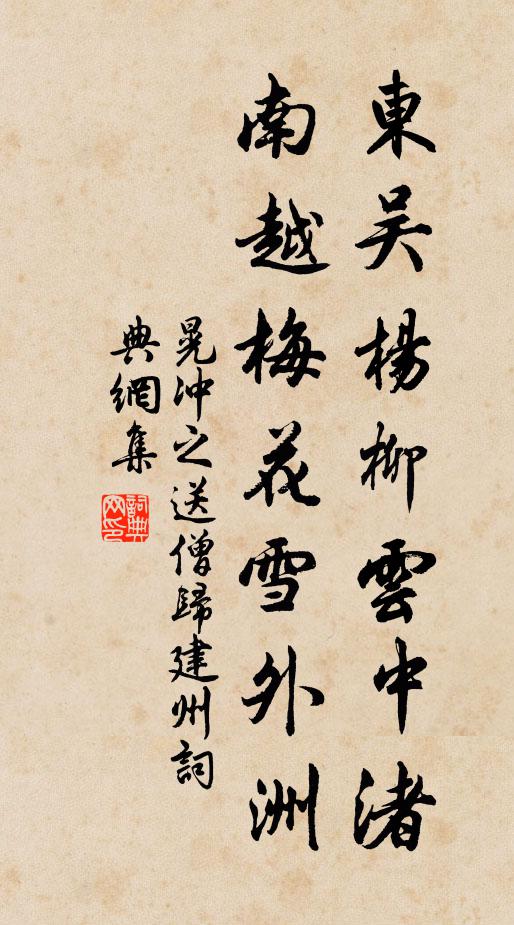 東吴楊柳雲中渚
南越梅花雪外洲
晁沖之送僧歸建州詞
典網集
詞典網印